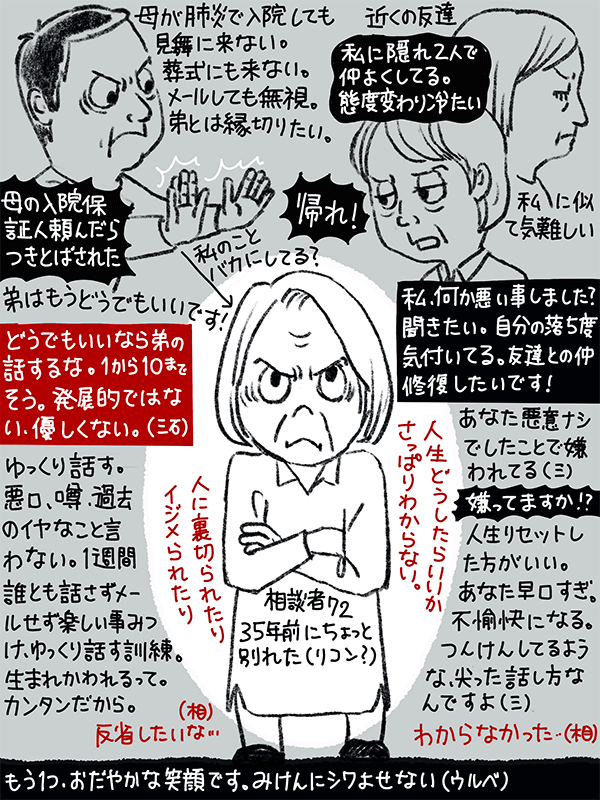 母が肺炎で入院しても
見舞に来ない。
葬式にも来ない。
メールしても無視。
弟とは縁切りたい。
近くの友達
私に隠れ2人で
仲よくしてる。
態度変わり冷たい
母の入院保
証人頼んだら
つきとばされた
帰れ!
私に似
て気難しい
私のこと
バカにしてる?
弟はもうどうでもいいです!
私、何か悪い事しました?
聞きたい。自分の落ち度
気付いてる。友達との仲
修復したいです!
どうでもいいなら弟の
話するな。1から10まで
そう。発展的ではな
い、優しくない。(三石)
あなた悪意ナシ
でしたことで嫌
われてる(三)
嫌ってますか!?
人生リセットし
た方がいい。
あなた早口すぎ。
不愉快になる。
つんけんしてるよう
な、尖った話し方な
んですよ(三)
わからなかった‥(相)
人生どうしたらいいか
さっぱりわからない。
人に裏切られたり
イジメられたり
ゆっくり話す。
悪口、噂、過去
のイヤなこと言
わない。1週間
誰とも話さずメー
ルせず楽しい事みつ
け、ゆっくり話す訓練。
生まれかわれるって。
カンタンだから。
(相)
反省したいな…
相談者72
35年前にちょっと
別れた(リコン?)
もう1つ、おだやかな笑顔です。みけんにシワよせない(ウルベ)